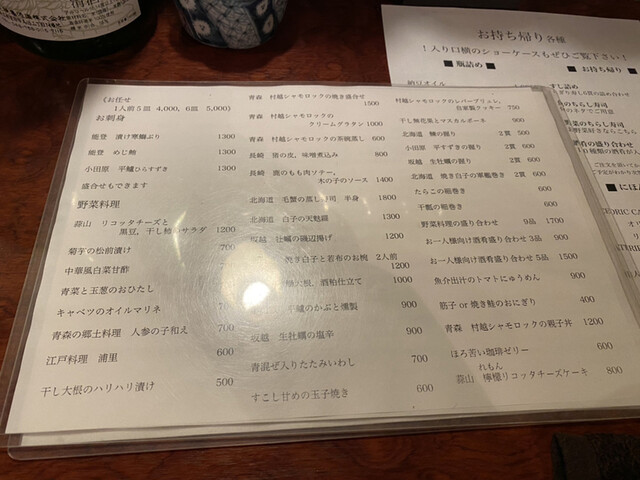 《お任せ
1人前5皿 4,000、6皿 5,000》
お刺身
能登 漬け寒鰤ぶり 1300
能登 めじ鮪 1300
小田原 平鱸ひらすずき 1300
盛合せもできます
野菜料理
蒜山 リコッタチーズと
黒豆、干し柿のサラダ 1200
菊芋の松前漬け 700
中華風白菜甘酢
青菜と玉葱のおひたし
キャベツのオイルマリネ
青森の郷土料理 人参の子和え 700
江戸料理 浦里 600
干し大根のハリハリ漬け 500
青森 村越シャモロックの焼き盛合せ
1500
青森 村越シャモロックの
クリームグラタン 1000
青森 村越シャモロックの茶碗蒸し 600
長崎 猪の皮、味噌煮込み 800
長崎 鹿のもも肉ソテー、
木の子のソース 1400
北海道 毛蟹の蒸し寿司 半身 1800
北海道 白子の天麩羅 1300
坂越 牡蠣の磯辺揚げ 1200
焼き白子と若布のお椀 2人前
1200
大根、酒粕仕立て 1000
平鱸のかぶと燻製 900
坂越 生牡蠣の塩辛 900
青混ぜ入りたたみいわし 700
すこし甘めの玉子焼き 600
村越シャモロックのレバーブリュレ、
自家製クッキー 750
干し無花果とマスカルポーネ 900
北海道 鰊の握り 2貫 500
小田原 平すずきの握り 2貫 600
坂越 生牡蠣の握り 2貫 600
北海道 焼き白子の軍艦巻き 2貫 600
たらこの細巻き 600
干瓢の細巻き 600
野菜料理の盛り合わせ 9品 1700
お一人様向け酒肴盛り合わせ 3品 900
お一人様向け酒肴盛り合わせ 5品 1500
魚介出汁のトマトにゅうめん 900
筋子 or 焼き鮭のおにぎり 400
青森 村越シャモロックの親子丼 1200
ほろ苦い珈琲ゼリー 600
れもん
蒜山 檸檬リコッタチーズケーキ 800
お持ち帰り各種
1入り口横のショーケースもぜひご覧下さい！
■ 瓶詰め ■
■ お持ち帰り
納豆オイル